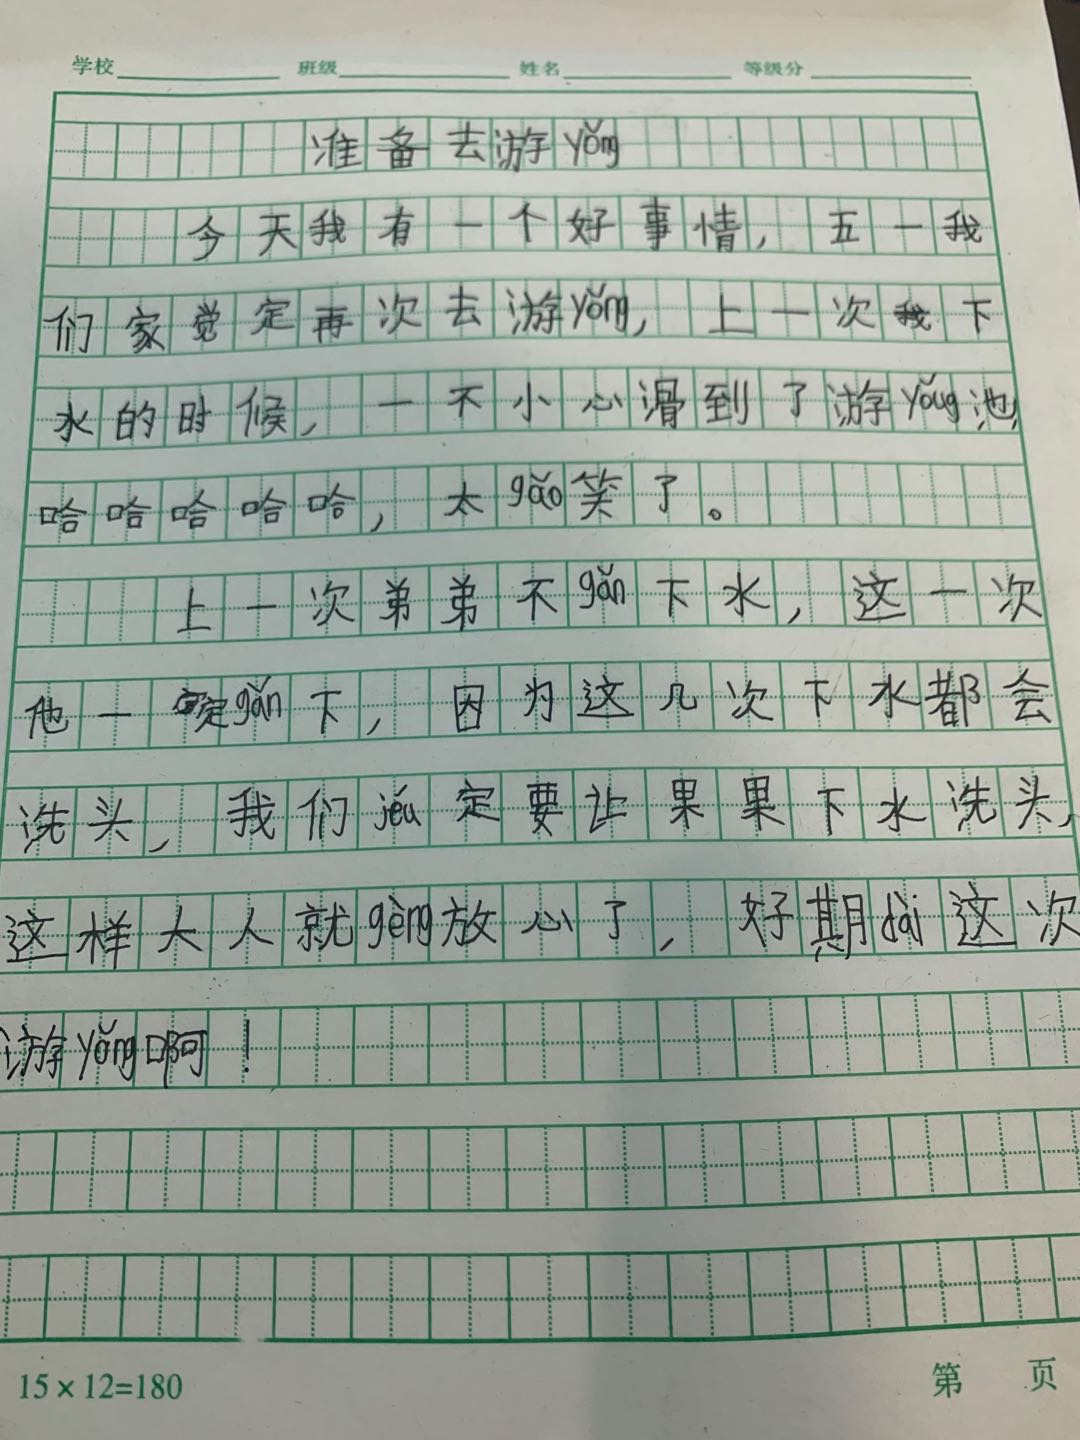 学校 班级 姓名 等级分
准备去游yǒng
今天我有一个好事情，五一我
们家觉定再次去游yǒng，上一次我下
水的时候，一不小心滑到了游yǒng池，
哈哈哈哈哈，太gǎo笑了。
上一次弟弟不gǎn下水，这一次
他一定gǎn下，因为这几次下水都会
洗头，我们jěu定要让果果下水洗头，
这样大人就gèng放心了，好期dài这次
游yǒng啊！
15×12=180 第 页